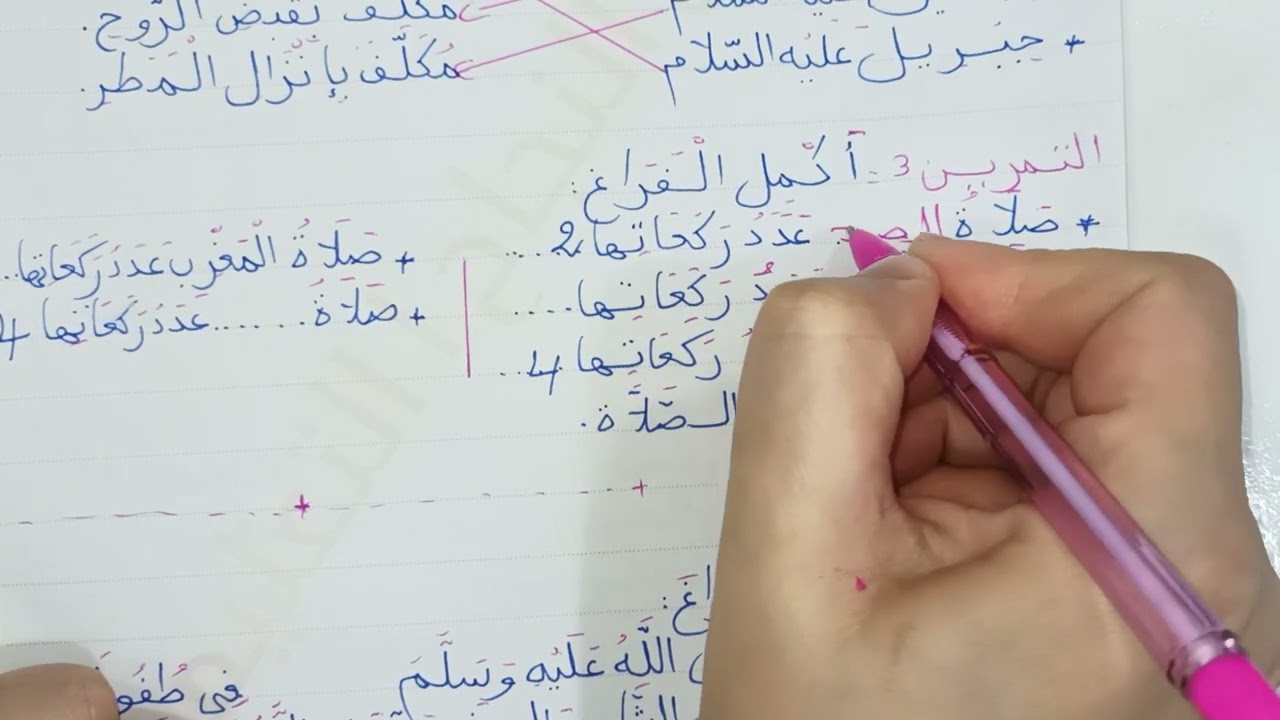 عليه السلام مكلف بقبض الروح.
* جبريل عليه السلام مُكَلّف بإنْزَال الْمَطَرِ
التمرين 3: أكْمِل الْفَرَاغ:
* صَلَاةُ الص عَدَدُ رَكَعَاتِهَا 2....
دُ رَكَعَاتِهَا....
رَكَعَاتِهَا 4...
الصَّلَاة.
+ صَلَاةُ الْمَغْرِب عَدَدُ رَكَعَاتِهَا..
+ صَلَاةُ ....... عَدَدُ رَكَعَاتِهَا 4
اغَ:
اللَّهُ عَلَيْهِ وَسَلَّمَ
فِي طُفُو